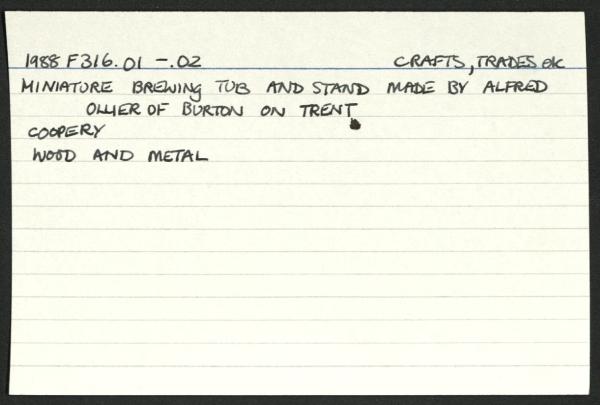 1988 F316.01 -.02 CRAFTS, TRADES etc
MINIATURE BREWING TUB AND STAND MADE BY ALFRED
OLLIER OF BURTON ON TRENT
COOPERY
WOOD AND METAL